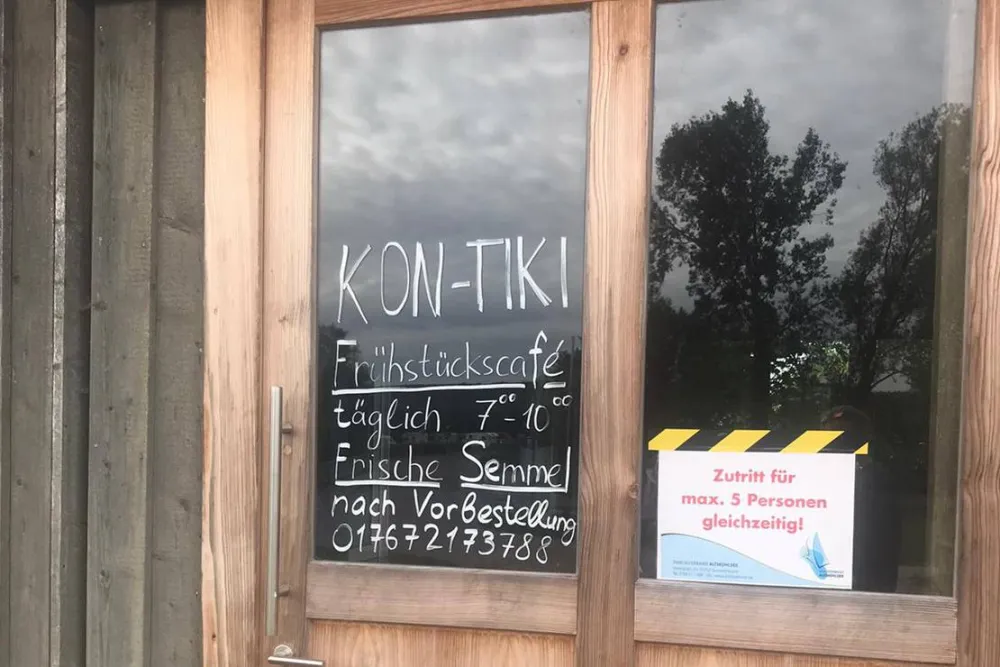 KON-TIKI
Frühstückscafé
täglich 7⁰⁰-10⁰⁰
Frische Semmel
nach Vorbestellung
017672173788
Zutritt für
max. 5 Personen
gleichzeitig!
ALTMÜHLSEE